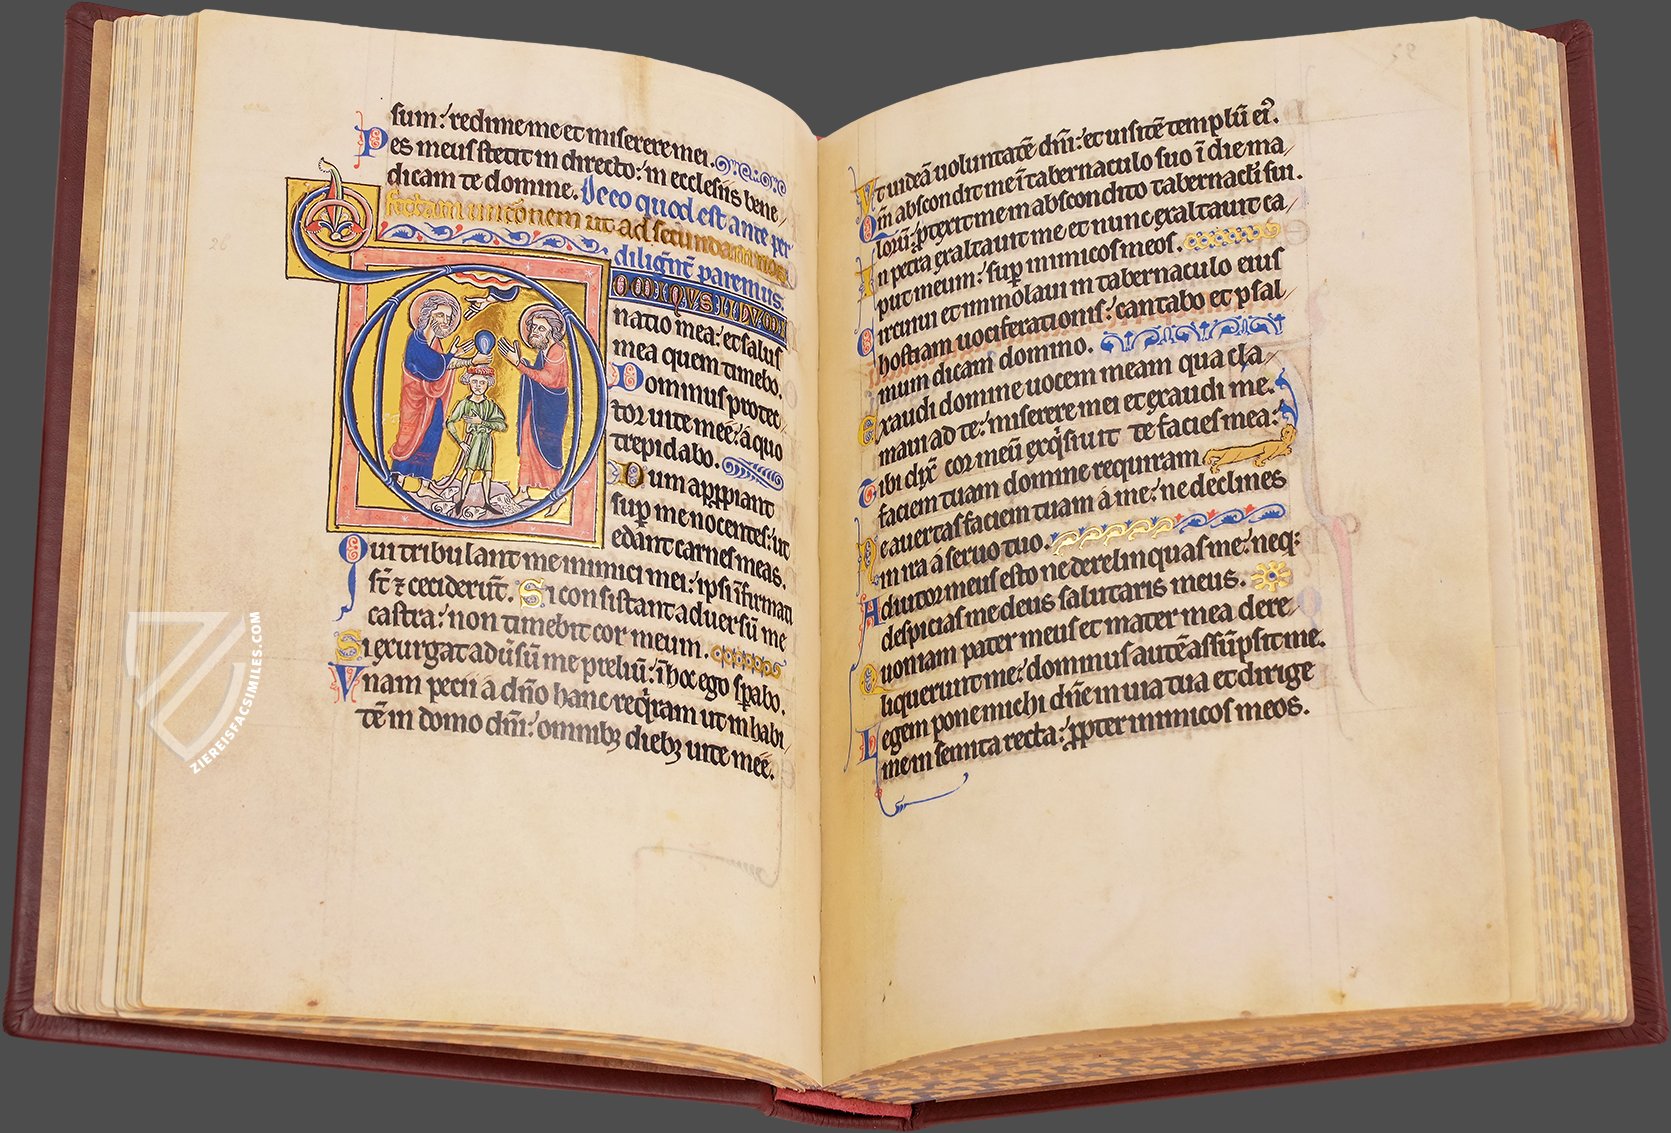 sum: redime me et miserere mei.
Pes meus stetit in directo: in ecclesiis bene/
dicam te domine. Deco quod est ante per
diligēt paremus
DOMINUS ILLUMI
natio mea: et salus
mea quem timebo.
Dominus protec/
tor uite meē: a quo
trepidabo.
Dum appropiant
sup me nocentes: ut
edant carnes meas.
Qui tribulant me inimici mei: ipsi īfirmati
st̄ ⁊ ceciderūt. Si consistant aduersū me
castra: non timebit cor meum.
Si exurgat adūsū me preliū: ī hoc ego spabo.
Vnam pecii a dn̄o hanc reqiram ut inhabi/
tē in domo dn̄i: omnibꝫ diebꝫ uite meē.
Vt uideā uoluntatē dn̄i: et uisitē templū eiꝰ.
Qm̄ abscondit me ī tabernaculo suo ī die ma/
lorū: ptexit me in abscondito tabernacli sui.
In petra exaltauit me et nunc exaltauit ca/
put meum: sup inimicos meos.
Circuiui et immolaui in tabernaculo eius
hostiam uociferationis: cantabo et psal/
mum dicam domino.
Exaudi domine uocem meam qua cla/
maui ad te: miserere mei et exaudi me.
Tibi dix̄ cor meū exqisiuit te facies mea:
faciem tuam domine requiram.
Ne auertas faciem tuam a me: ne declines
in ira a seruo tuo.
Adiutor meus esto ne derelinquas me: neqꝫ
despicias me deus salutaris meus.
Quoniam pater meus et mater mea dere/
liquerunt me: dominus autē assūpsit me.
Legem pone michi dn̄e in uia tua et dirige
me in semita recta: ppter inimicos meos.
ZIEREISFACSIMILES.COM